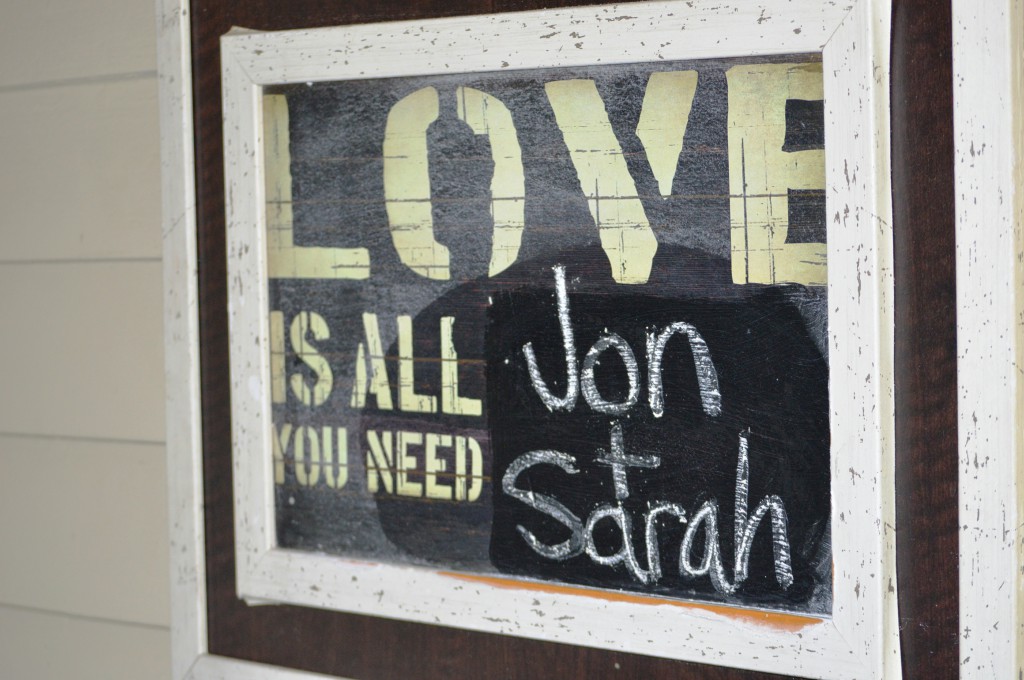 LOVE
IS ALL
YOU NEED
Jon
+
Sarah